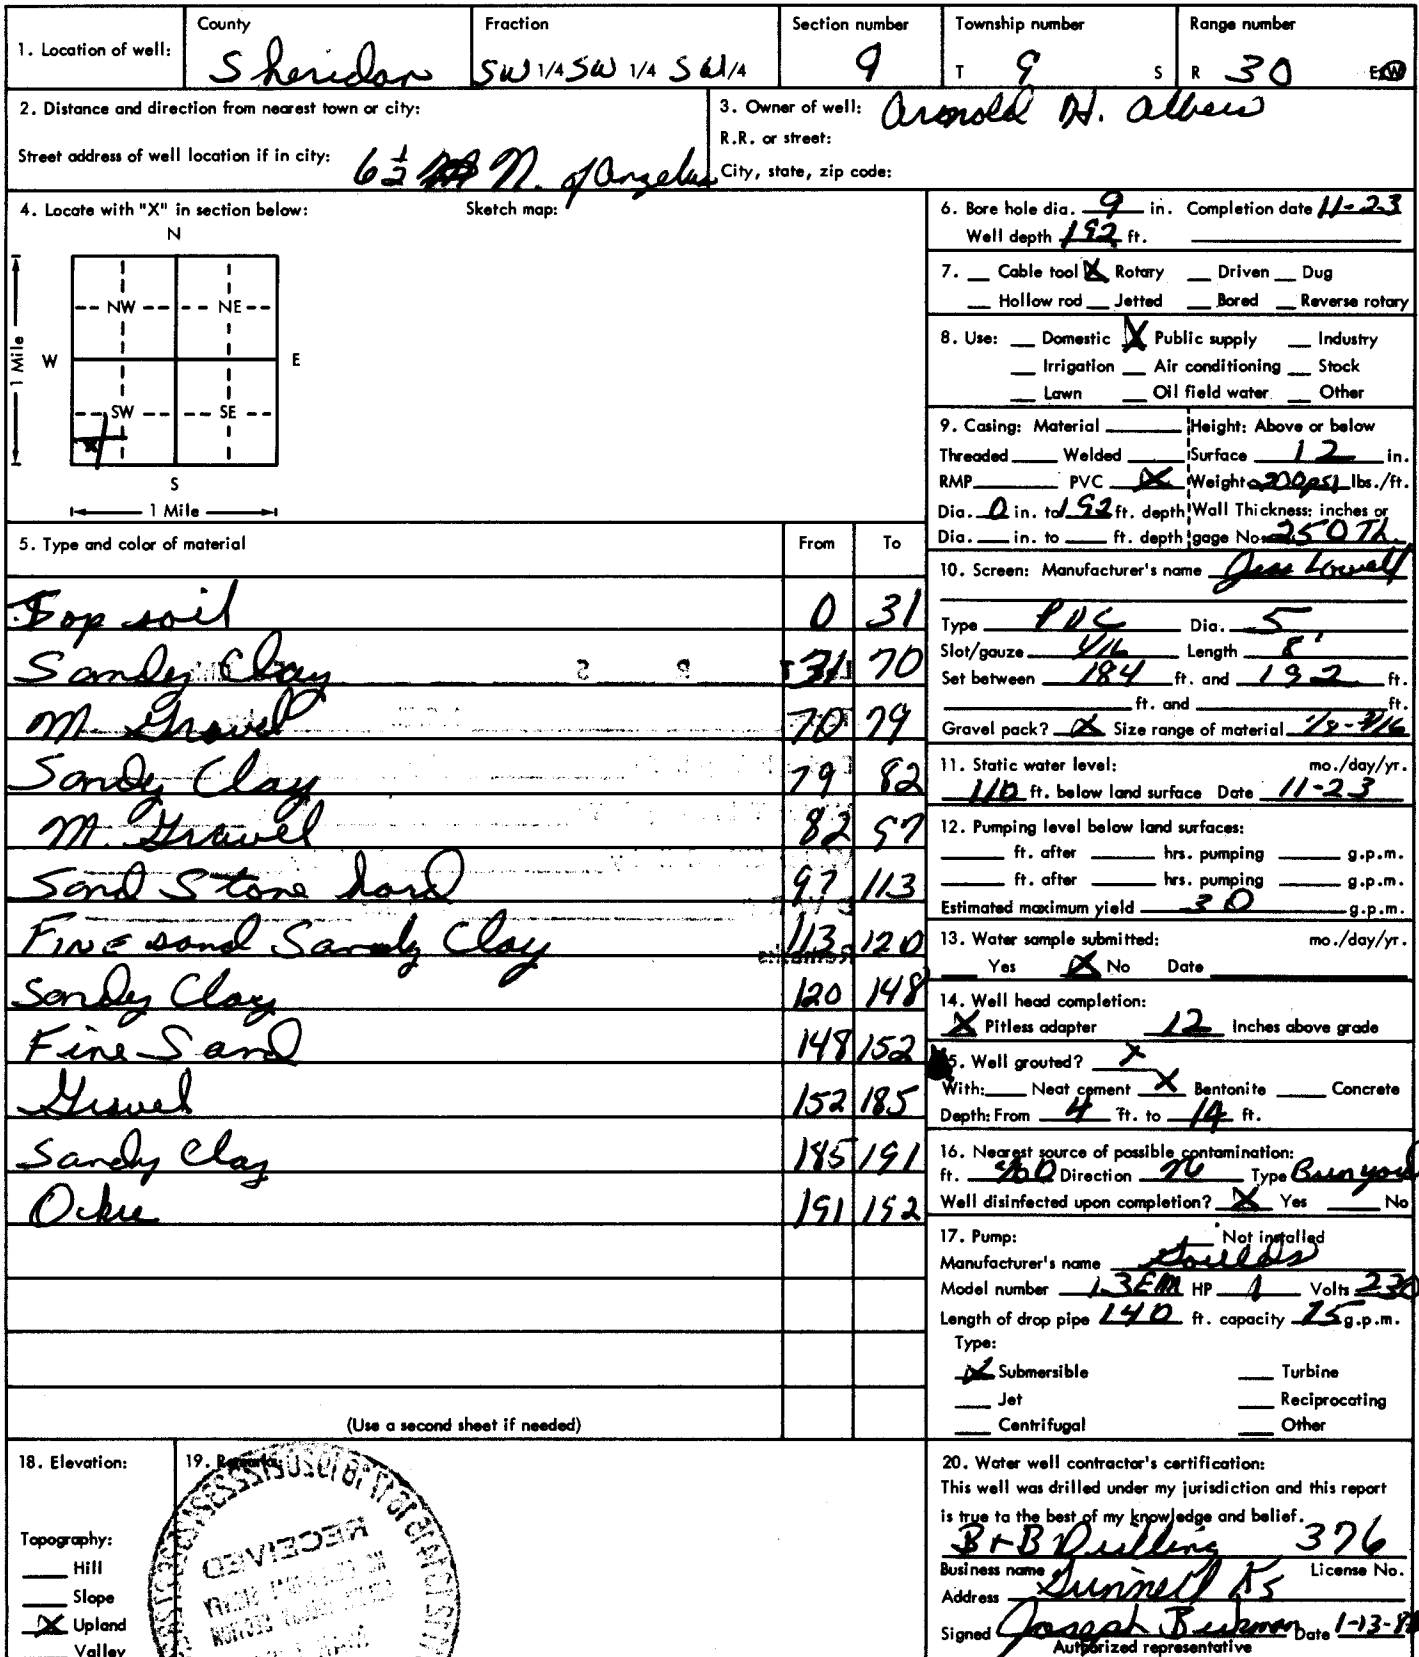 1. Location of well: County Sheridan Fraction SW 1/4 SW 1/4 SW 1/4 Section number 9 Township number T 9 S Range number R 30 E W
2. Distance and direction from nearest town or city:
Street address of well location if in city: 6 1/2 N. of Angelus
3. Owner of well: Arnold H. Albers
R.R. or street:
City, state, zip code:
4. Locate with "X" in section below: Sketch map:
N
NW NE
W E
1 Mile
SW SE
X
S
1 Mile
5. Type and color of material From To
Top soil 0 31
Sandy Clay 31 70
M. Gravel 70 79
Sandy Clay 79 82
M. Gravel 82 97
Sand Stone hard 97 113
Fine sand Sandy Clay 113 120
Sandy Clay 120 148
Fine Sand 148 152
Gravel 152 185
Sandy Clay 185 191
Ochre 191 192
(Use a second sheet if needed)
6. Bore hole dia. 9 in. Completion date 11-23
Well depth 192 ft.
7. Cable tool X Rotary Driven Dug
Hollow rod Jetted Bored Reverse rotary
8. Use: Domestic X Public supply Industry
Irrigation Air conditioning Stock
Lawn Oil field water Other
9. Casing: Material Height: Above or below
Threaded Welded Surface 12 in.
RMP PVC X Weight 200psi lbs./ft.
Dia. 0 in. to 192 ft. depth Wall Thickness: inches or
Dia. in. to ft. depth gage No. 250 Th.
10. Screen: Manufacturer's name Jess Lowell
Type PVC Dia. 5
Slot/gauze 1/16 Length 8'
Set between 184 ft. and 192 ft.
ft. and ft.
Gravel pack? X Size range of material 1/8-3/16
11. Static water level: mo./day/yr.
110 ft. below land surface Date 11-23
12. Pumping level below land surfaces:
ft. after hrs. pumping g.p.m.
ft. after hrs. pumping g.p.m.
Estimated maximum yield 30 g.p.m.
13. Water sample submitted: mo./day/yr.
Yes X No Date
14. Well head completion:
X Pitless adapter 12 Inches above grade
15. Well grouted? X
With: Neat cement X Bentonite Concrete
Depth: From 4 ft. to 14 ft.
16. Nearest source of possible contamination:
ft. Direction Type
Well disinfected upon completion? X Yes No
17. Pump: Not installed
Manufacturer's name Goulds
Model number 13EM HP 1 Volts 230
Length of drop pipe 140 ft. capacity 15 g.p.m.
Type:
X Submersible Turbine
Jet Reciprocating
Centrifugal Other
18. Elevation:
Topography:
Hill
Slope
X Upland
Valley
19. Remarks:
RECEIVED
20. Water well contractor's certification:
This well was drilled under my jurisdiction and this report
is true to the best of my knowledge and belief.
B+B Drilling 376
Business name License No.
Address Grinnell Ks
Signed Joseph Beckman Date 1-13-
Authorized representative